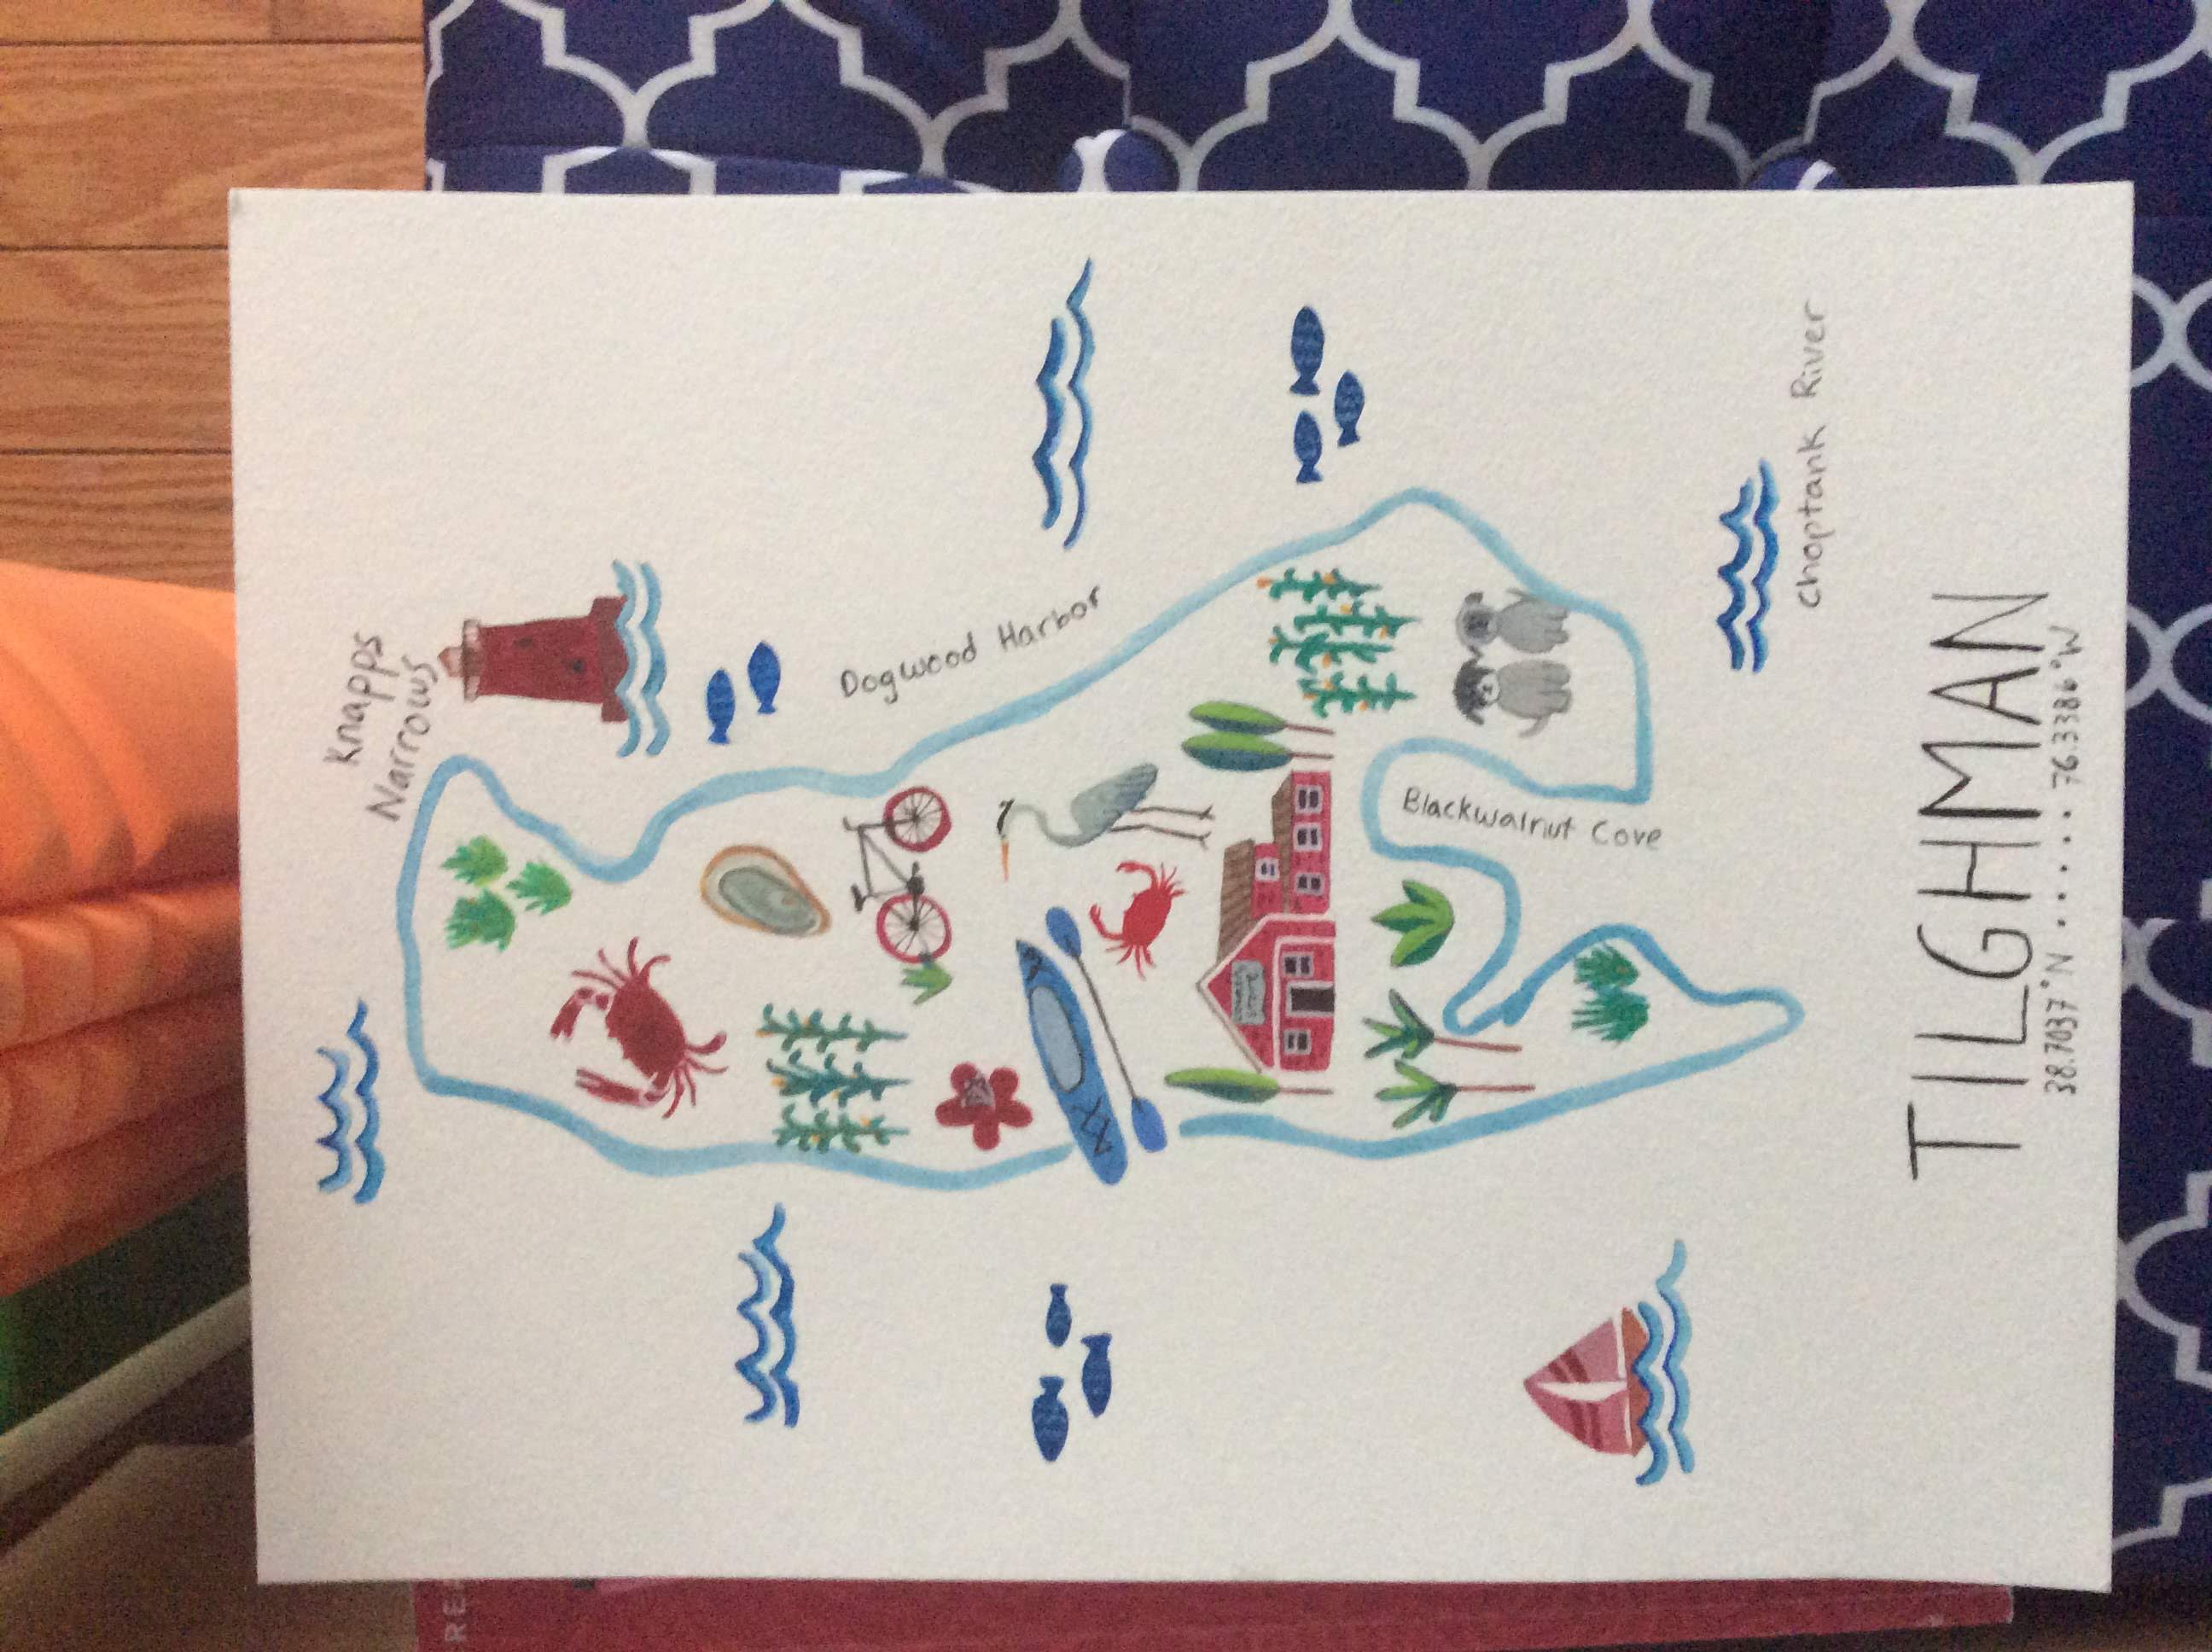 Knapps
Narrows
REA
Dogwood Harbor
Country
Store
Blackwalnut Cove
Choptank River
TILGHMAN
38.7037°N ..... 76.3386°W